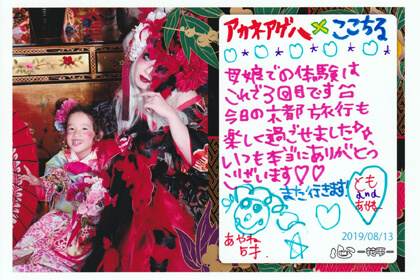 アカネアゲハ×ここちる
母娘での体験は
これで3回目です
今回の京都旅行も
楽しく過ごせました
いつも本当にありがとう
ございます♡♡
また行きます!
とも
and
あかね
2019/08/13
心-花雫-